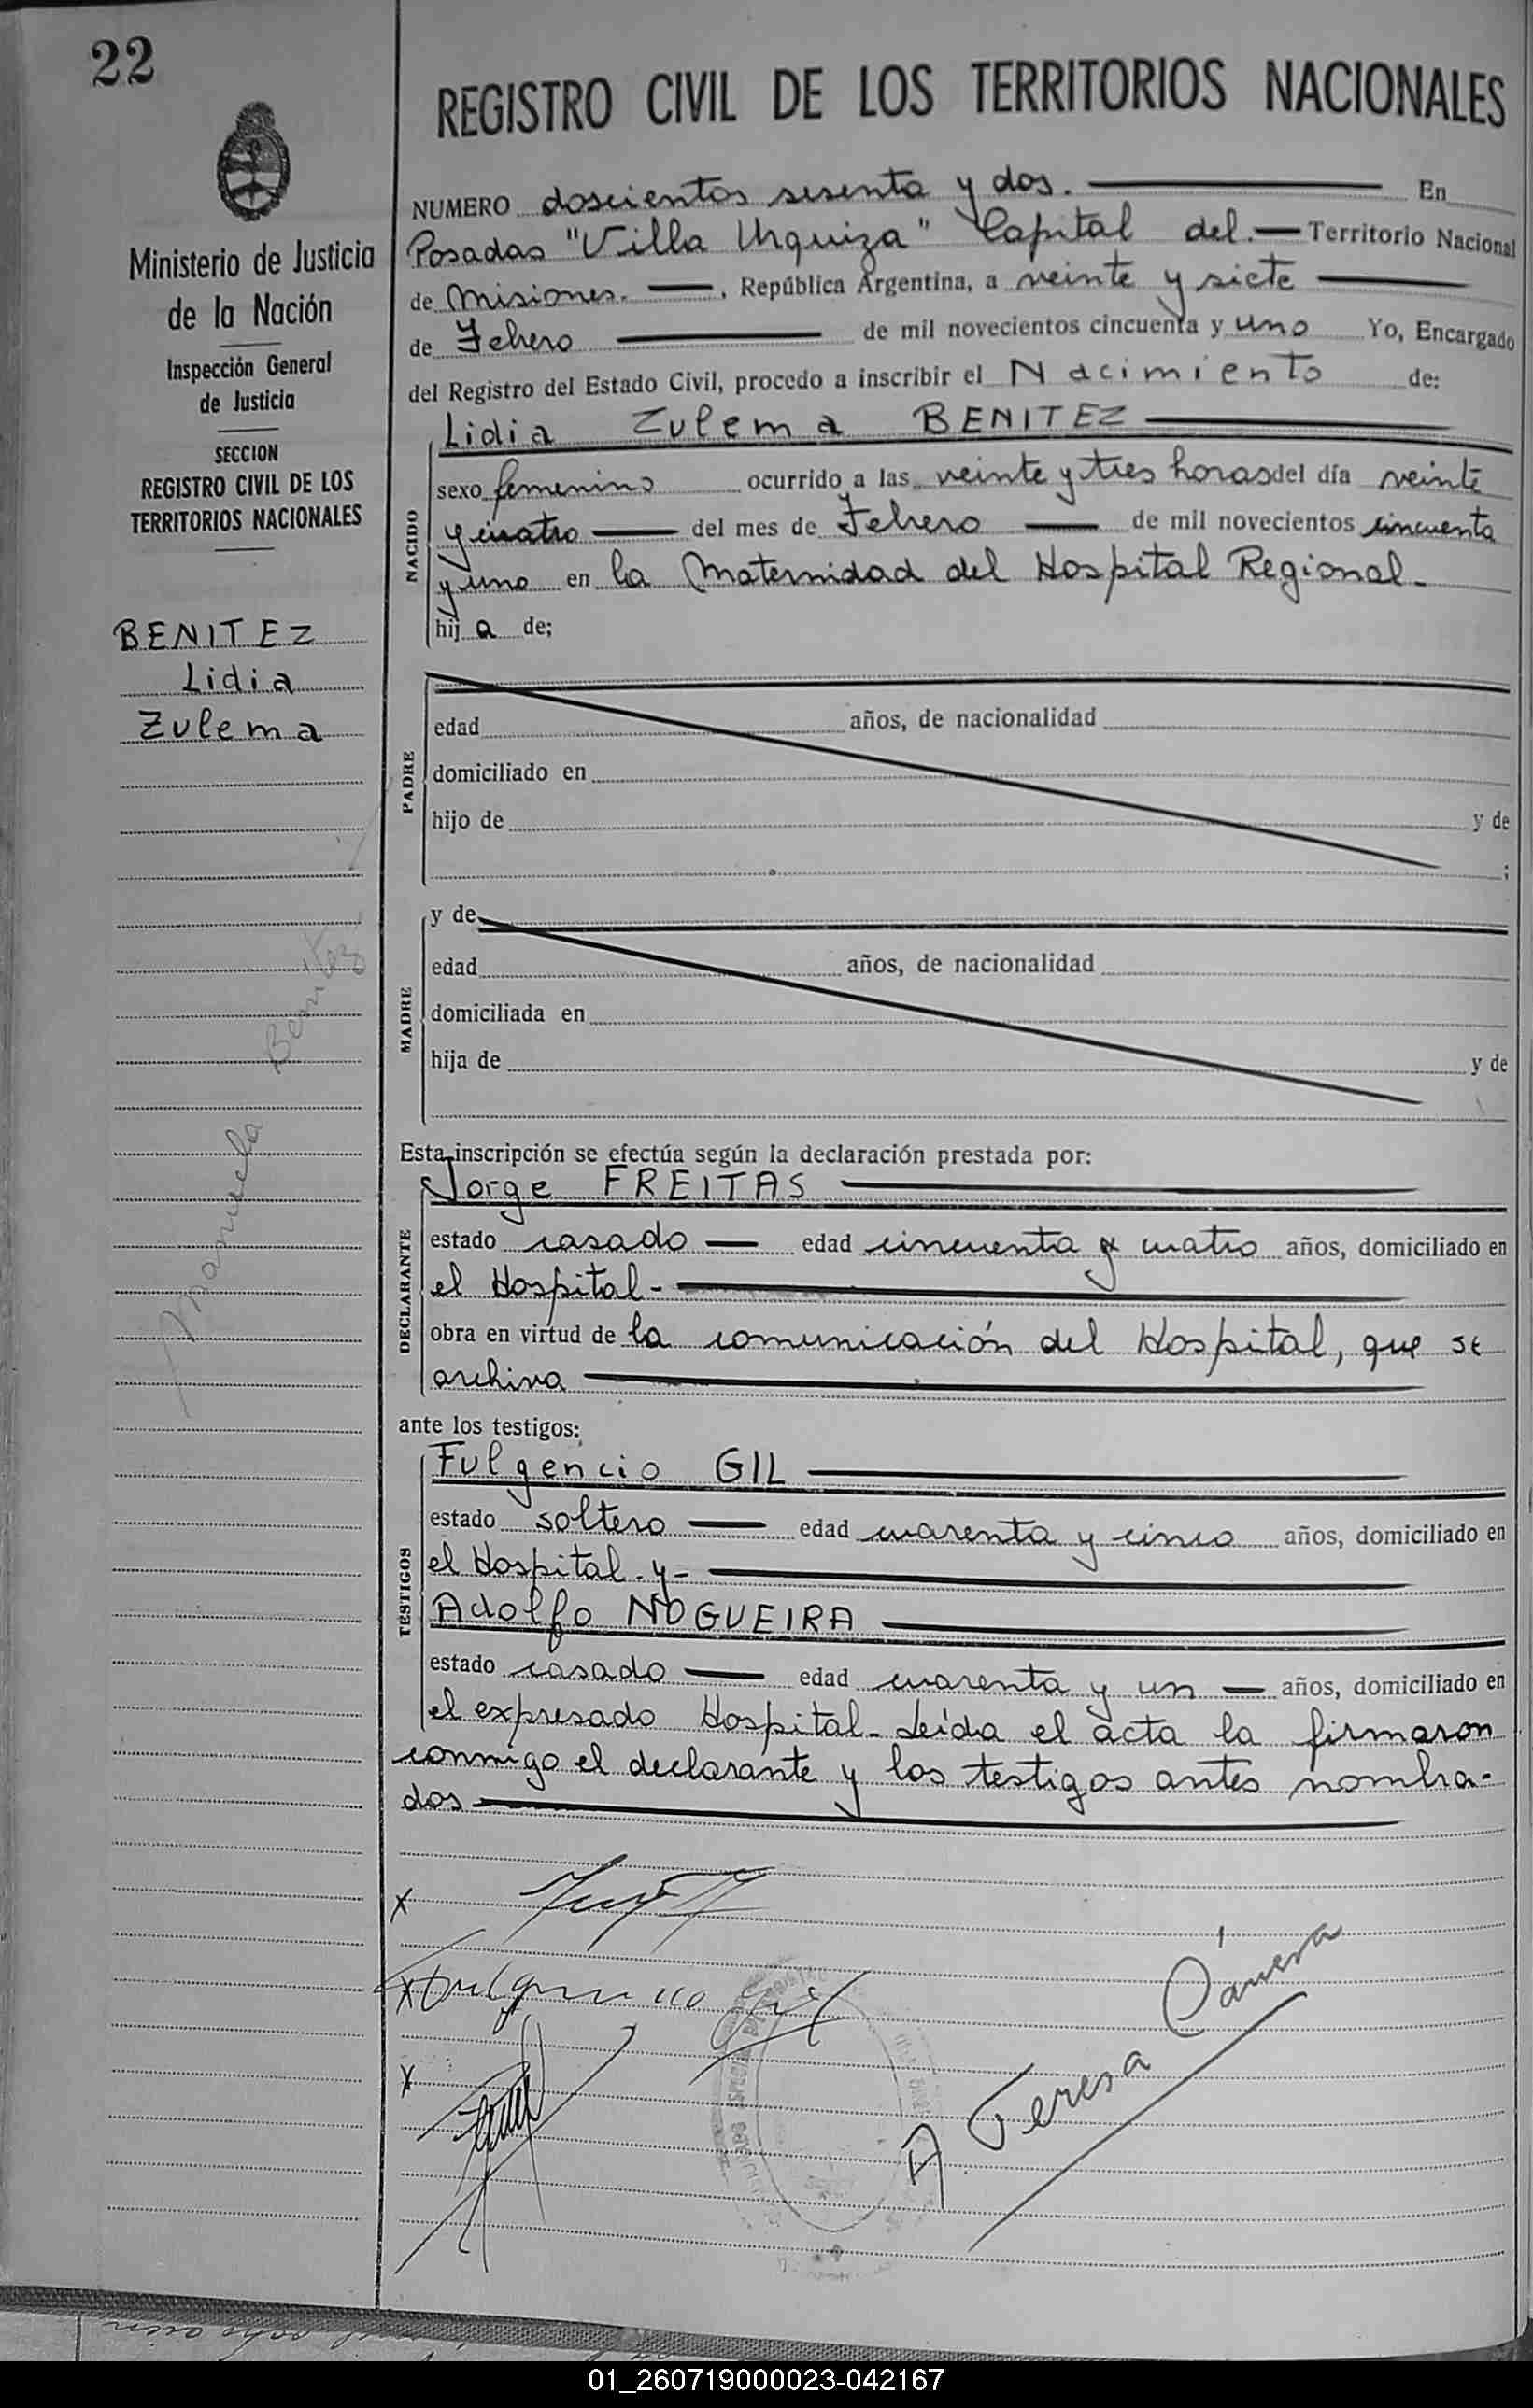 22
REGISTRO CIVIL DE LOS TERRITORIOS NACIONALES
Ministerio de Justicia
de la Nación
Inspección General
de Justicia
SECCION
REGISTRO CIVIL DE LOS
TERRITORIOS NACIONALES
BENITEZ
Lidia
Zulema
Manuela Benitez
NUMERO doscientos sesenta y dos. En
Posadas "Villa Urquiza" Capital del. Territorio Nacional
de Misiones. , República Argentina, a veinte y siete
de Febrero de mil novecientos cincuenta y uno Yo, Encargado
del Registro del Estado Civil, procedo a inscribir el Nacimiento de:
Lidia Zulema BENITEZ
NACIDO
sexo femenino ocurrido a las veinte y tres horas del día veinte
y cuatro del mes de Febrero de mil novecientos cincuenta
y uno en la Maternidad del Hospital Regional.
hij a de;
PADRE
edad años, de nacionalidad
domiciliado en
hijo de y de
;
MADRE
y de
edad años, de nacionalidad
domiciliada en
hija de y de
Esta inscripción se efectúa según la declaración prestada por:
DECLARANTE
Jorge FREITAS
estado casado edad cincuenta y cuatro años, domiciliado en
el Hospital-
obra en virtud de la comunicación del Hospital, que se
archiva
ante los testigos:
TESTIGOS
Fulgencio GIL
estado soltero edad cuarenta y cinco años, domiciliado en
el Hospital. y-
Adolfo NOGUEIRA
estado casado edad cuarenta y un años, domiciliado en
el expresado Hospital- Leída el acta la firmaron
conmigo el declarante y los testigos antes nombra-
dos
x
x Fulgencio Gil
x
A. Teresa Cánera
01_260719000023-042167